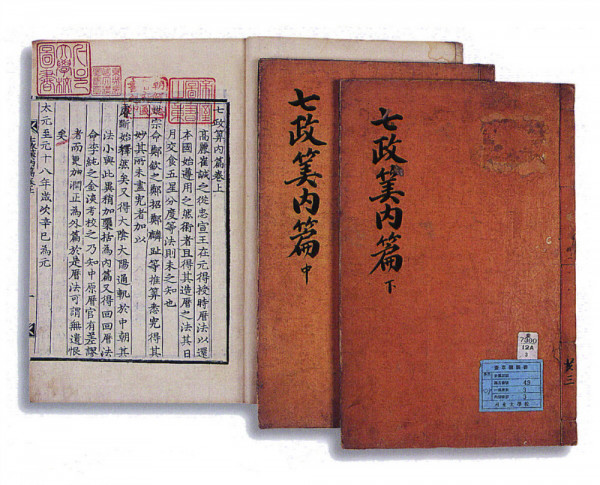 七政筭内篇卷上
高麗崔誠之從忠宣王在元得授時曆法以還
本國始遵用之然術者且得其造曆之法其日
月交食五星分度等法則未之知也
世宗命鄭欽之鄭招鄭麟趾等推算悉究得其
妙其所未盡究者加以
睿斷始釋然矣又得大陰大陽通軌於中朝其
法小與此異稍加檃括為内篇又得回回曆法
命李純之金淡考校之乃知中原曆官有差謬
者而更加潤正為外篇於是曆法可謂無遺恨
矣
太元至元十八年歲次辛巳為元
七政筭内篇
中
七政筭内篇
下
奎
12A
3